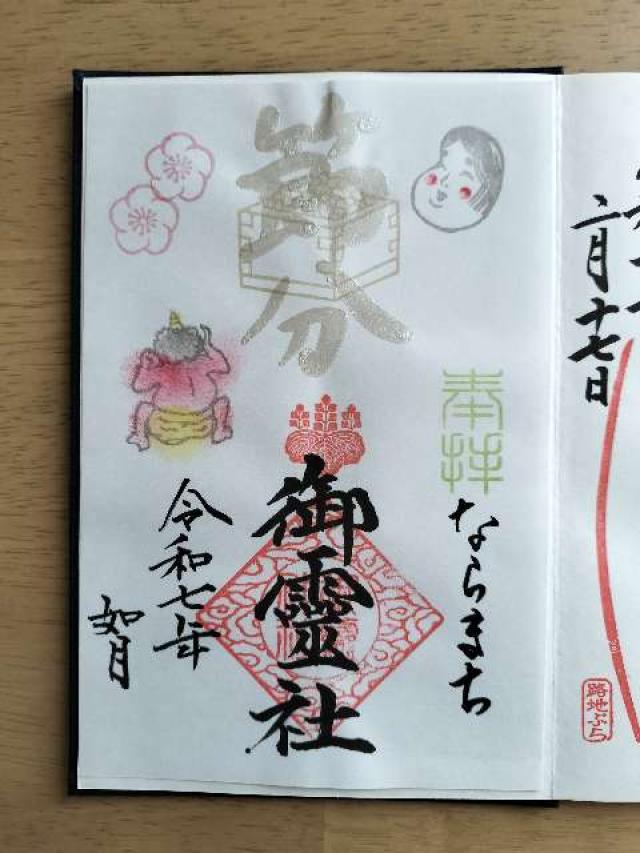 二月十七日
路地ぶら
奉拝
ならまち
節分
御靈社
令和七年
如月